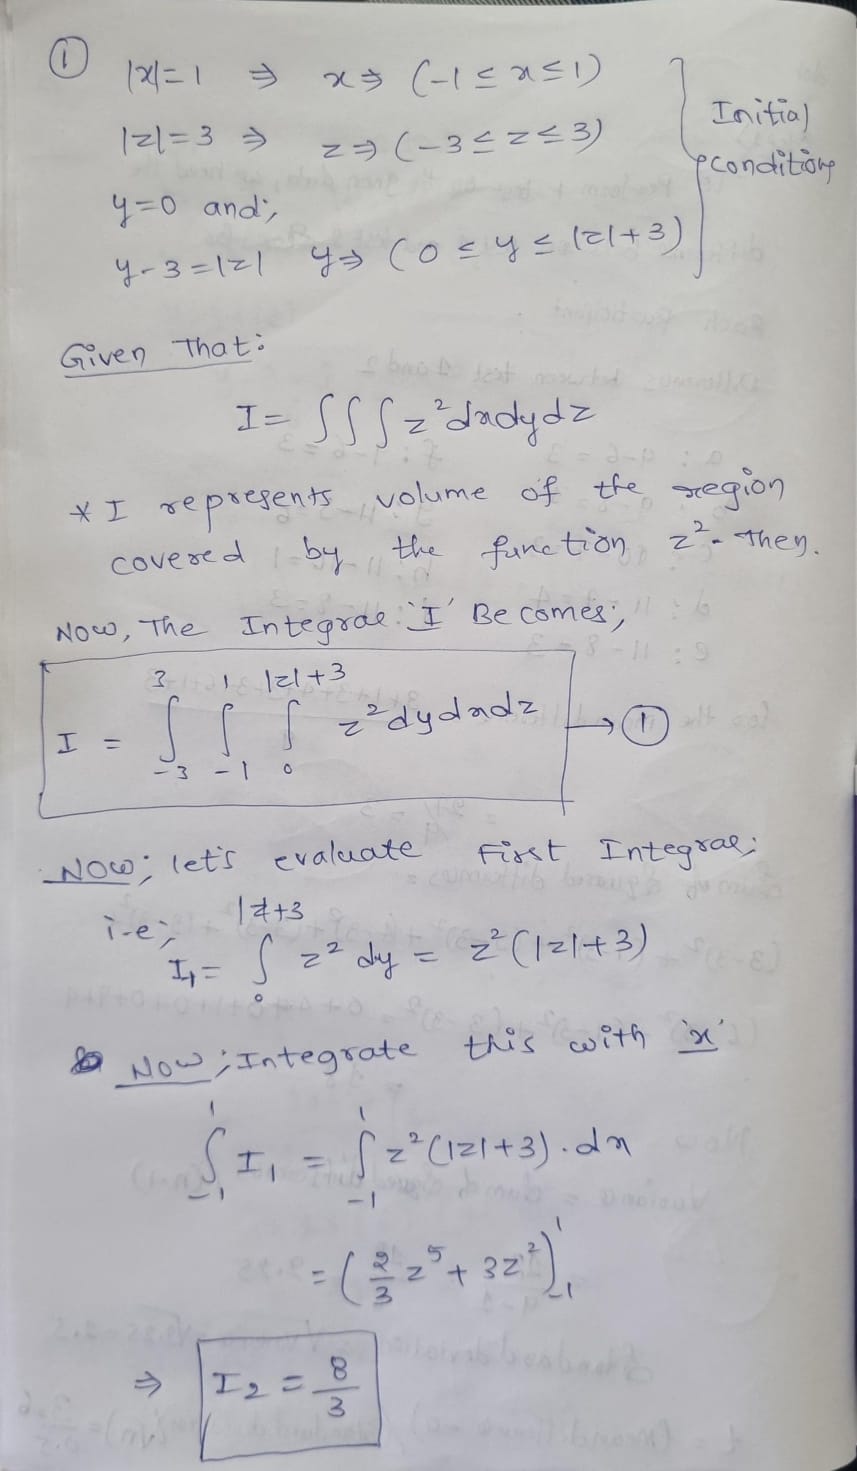 ① |x|=1 ⇒ x⇒ (-1 ≤ x ≤ 1)
|z|=3 ⇒ z⇒ (-3 ≤ z ≤ 3)
Initial
conditions
y=0 and;
y-3=|z| y⇒ (0 ≤ y ≤ |z|+3)
Given That:
I= ∫∫∫ z² dxdydz
* I represents volume of the region
covered by the function z². Then.
Now, The Integral 'I' Becomes;
I = ∫₋₃³ ∫₋₁¹ ∫₀^(|z|+3) z² dydxdz → ①
Now; let's evaluate First Integral;
i.e; I₁= ∫₀^(|z|+3) z² dy = z²(|z|+3)
Now; Integrate this with 'x'
∫₋₁¹ I₁ = ∫₋₁¹ z²(|z|+3).dx
= (2/3 z⁵ + 3z²)₋₁¹
⇒ I₂ = 8/3